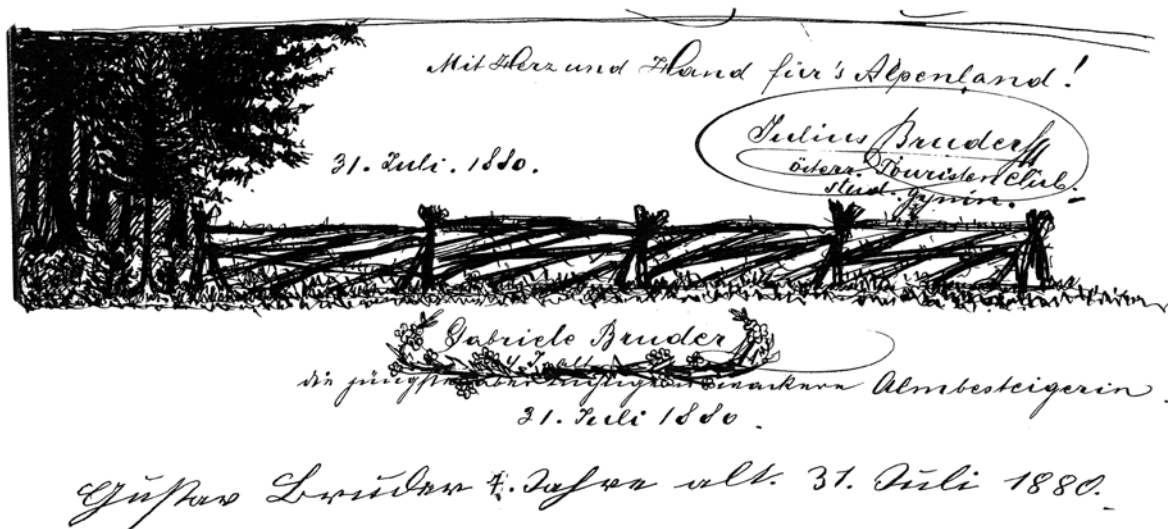 Mit Herz und Hand für's Alpenland!
Julius Bruder
31. Juli. 1880.
österr. Touristen Club.
stud. gymn.
Gabriele Bruder
J. alt
die jüngste aber wackere Almbesteigerin.
31. Juli 1880.
Gustav Bruder Jahre alt. 31. Juli 1880.